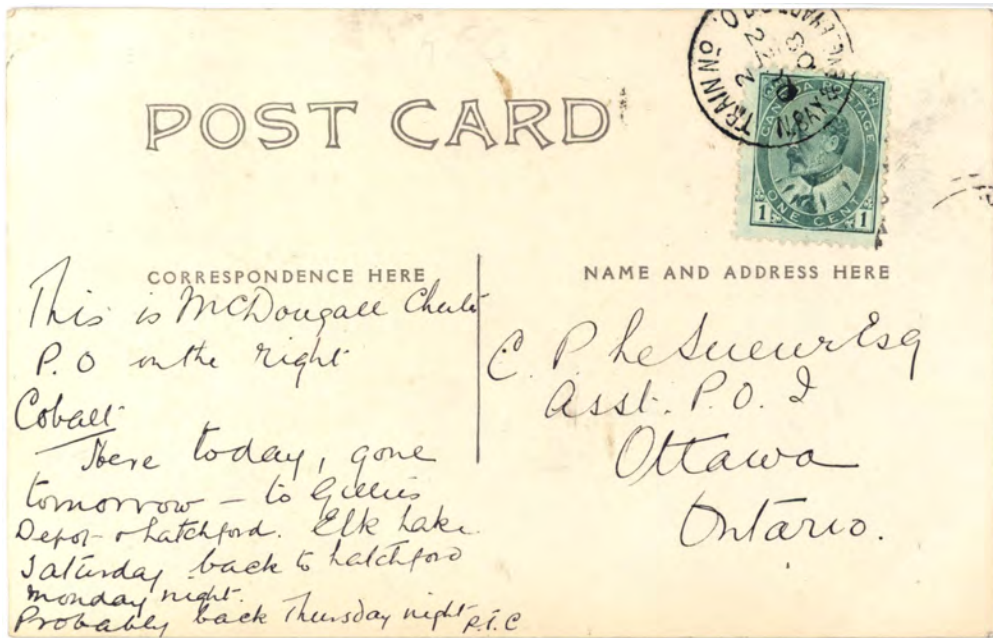 POST CARD
TRAIN No
CANADA POSTAGE
1 ONE CENT 1
CORRESPONDENCE HERE
This is McDougall Chute
P.O on the right
Cobalt
Here today, gone
tomorrow – to Gillies
Depot - & Latchford. Elk Lake.
Saturday back to Latchford
Monday night.
Probably back Thursday night
P.T.C
NAME AND ADDRESS HERE
C. P. LeSueur Esq
Asst. P.O. I
Ottawa
Ontario.